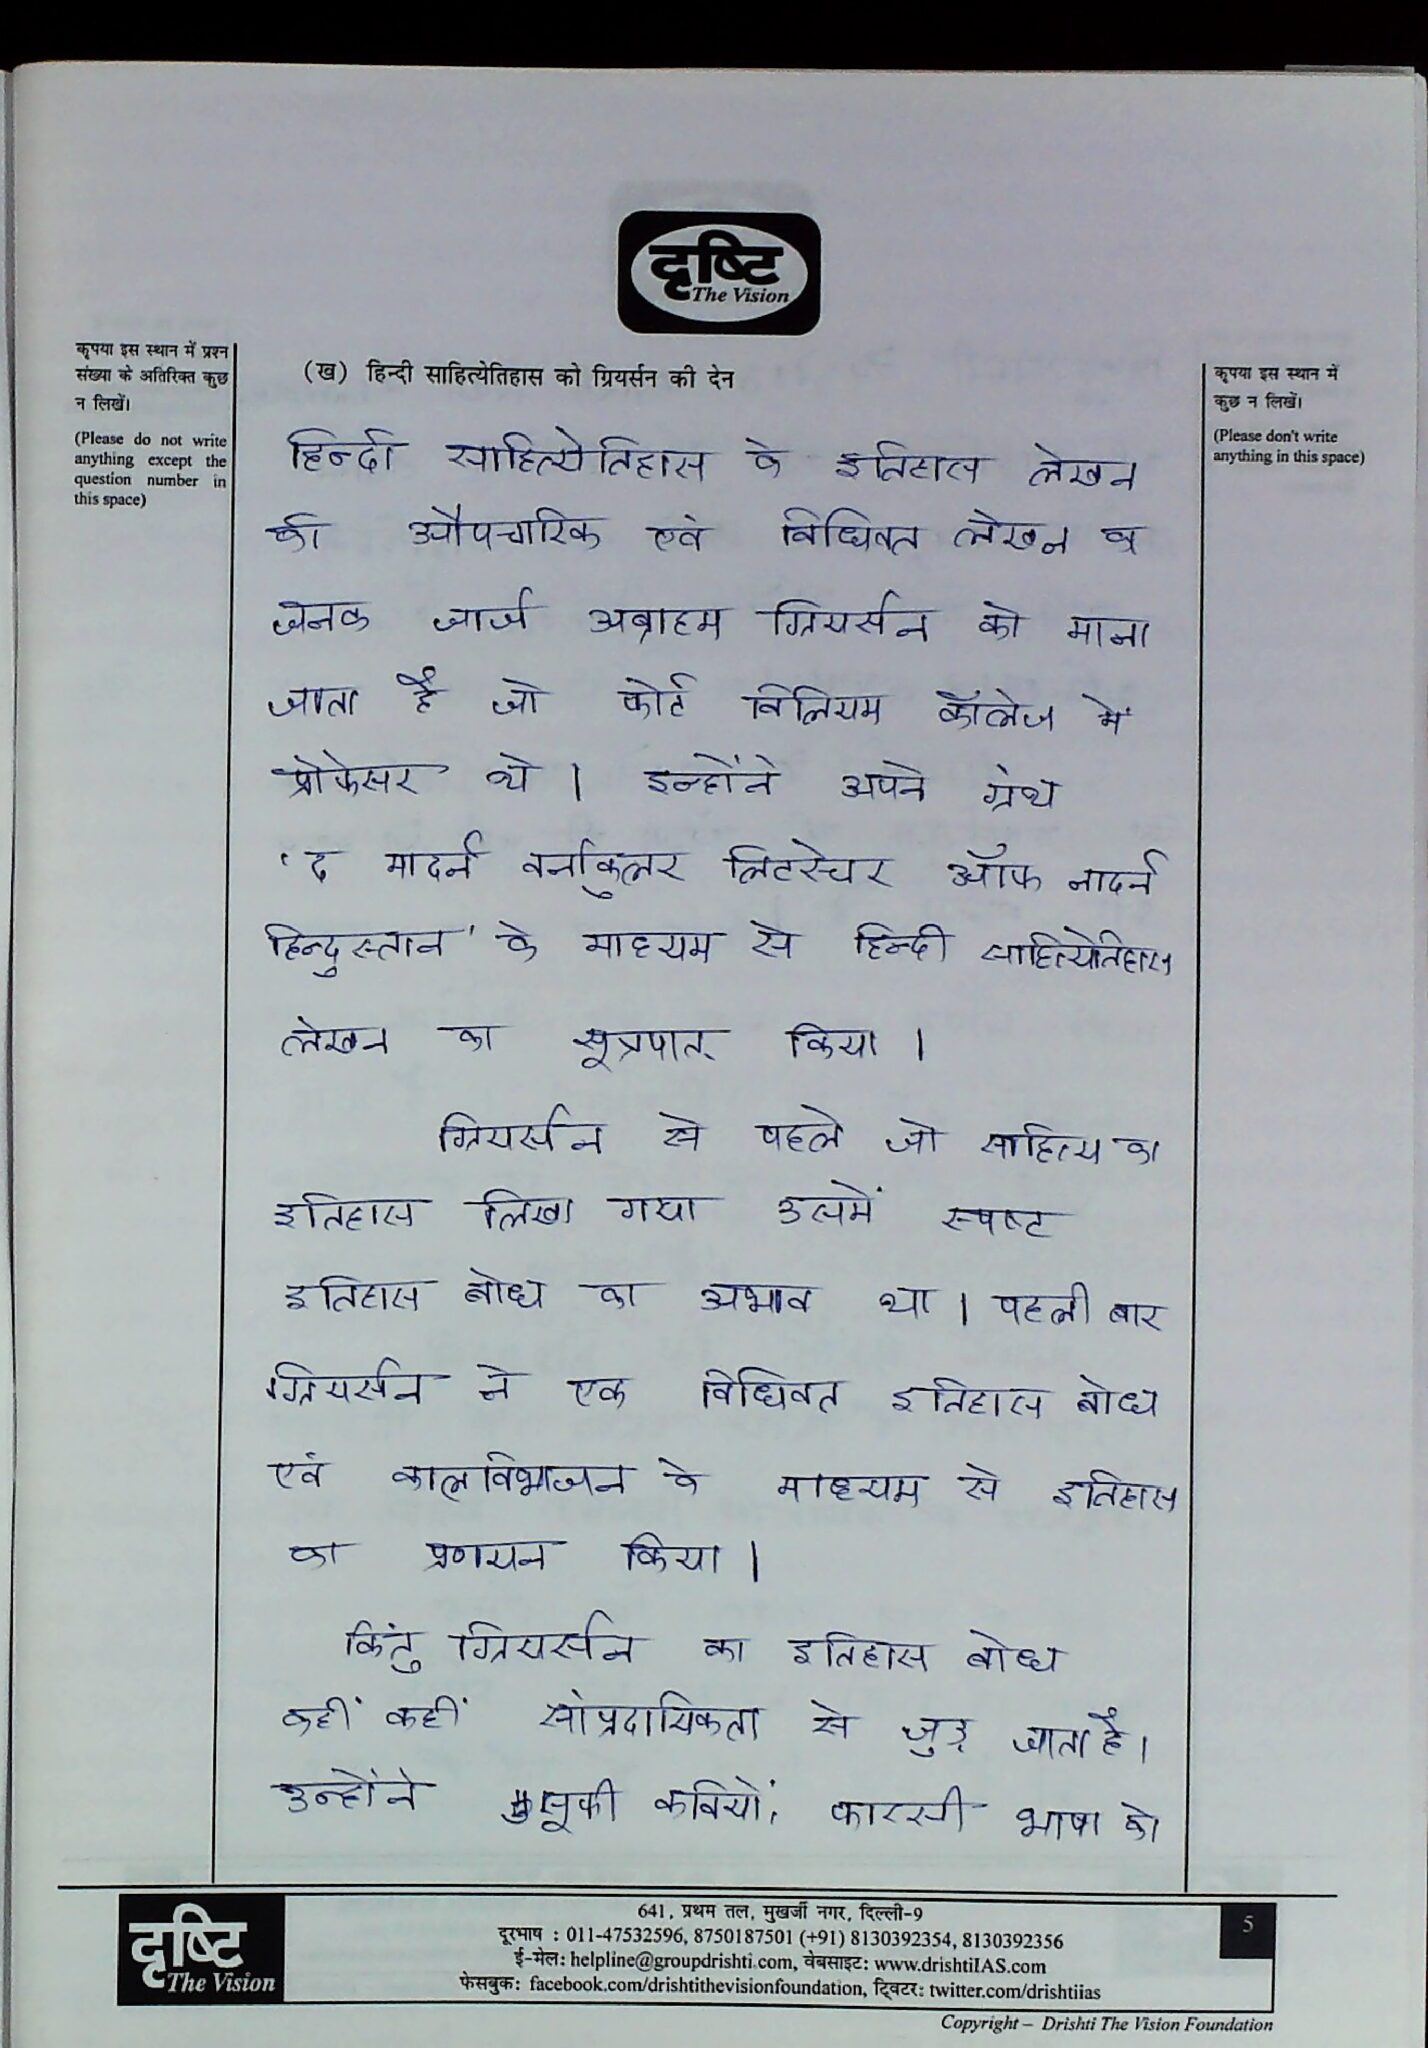 दृष्टि
The Vision
कृपया इस स्थान में प्रश्न
संख्या के अतिरिक्त कुछ
न लिखें।
(Please do not write
anything except the
question number in
this space)
(ख) हिन्दी साहित्येतिहास को ग्रियर्सन की देन
कृपया इस स्थान में
कुछ न लिखें।
(Please don't write
anything in this space)
हिन्दी साहित्येतिहास के इतिहास लेखन
की औपचारिक एवं विधिवत लेखन व
जनक जार्ज अब्राहम ग्रियर्सन को माना
जाता है जो फोर्ट विलियम कॉलेज में
प्रोफेसर थे। इन्होंने अपने ग्रंथ
'द मार्डन वर्नाकुलर लिटरेचर ऑफ नार्दन
हिन्दुस्तान' के माध्यम से हिन्दी साहित्येतिहास
लेखन का सूत्रपात किया।
ग्रियर्सन से पहले जो साहित्य का
इतिहास लिखा गया उसमें स्पष्ट
इतिहास बोध का अभाव था। पहली बार
ग्रियर्सन ने एक विधिवत इतिहास बोध
एवं कालविभाजन के माध्यम से इतिहास
का प्रणयन किया।
किंतु ग्रियर्सन का इतिहास बोध
कहीं कहीं सांप्रदायिकता से जुड़ जाता है।
उन्होंने सूफी कवियों, फारसी भाषा को
दृष्टि
The Vision
641, प्रथम तल, मुखर्जी नगर, दिल्ली-9
दूरभाष : 011-47532596, 8750187501 (+91) 8130392354, 8130392356
ई-मेल: helpline@groupdrishti.com, वेबसाइट: www.drishtiIAS.com
फेसबुक: facebook.com/drishtithevisionfoundation, ट्विटर: twitter.com/drishtiias
5
Copyright – Drishti The Vision Foundation